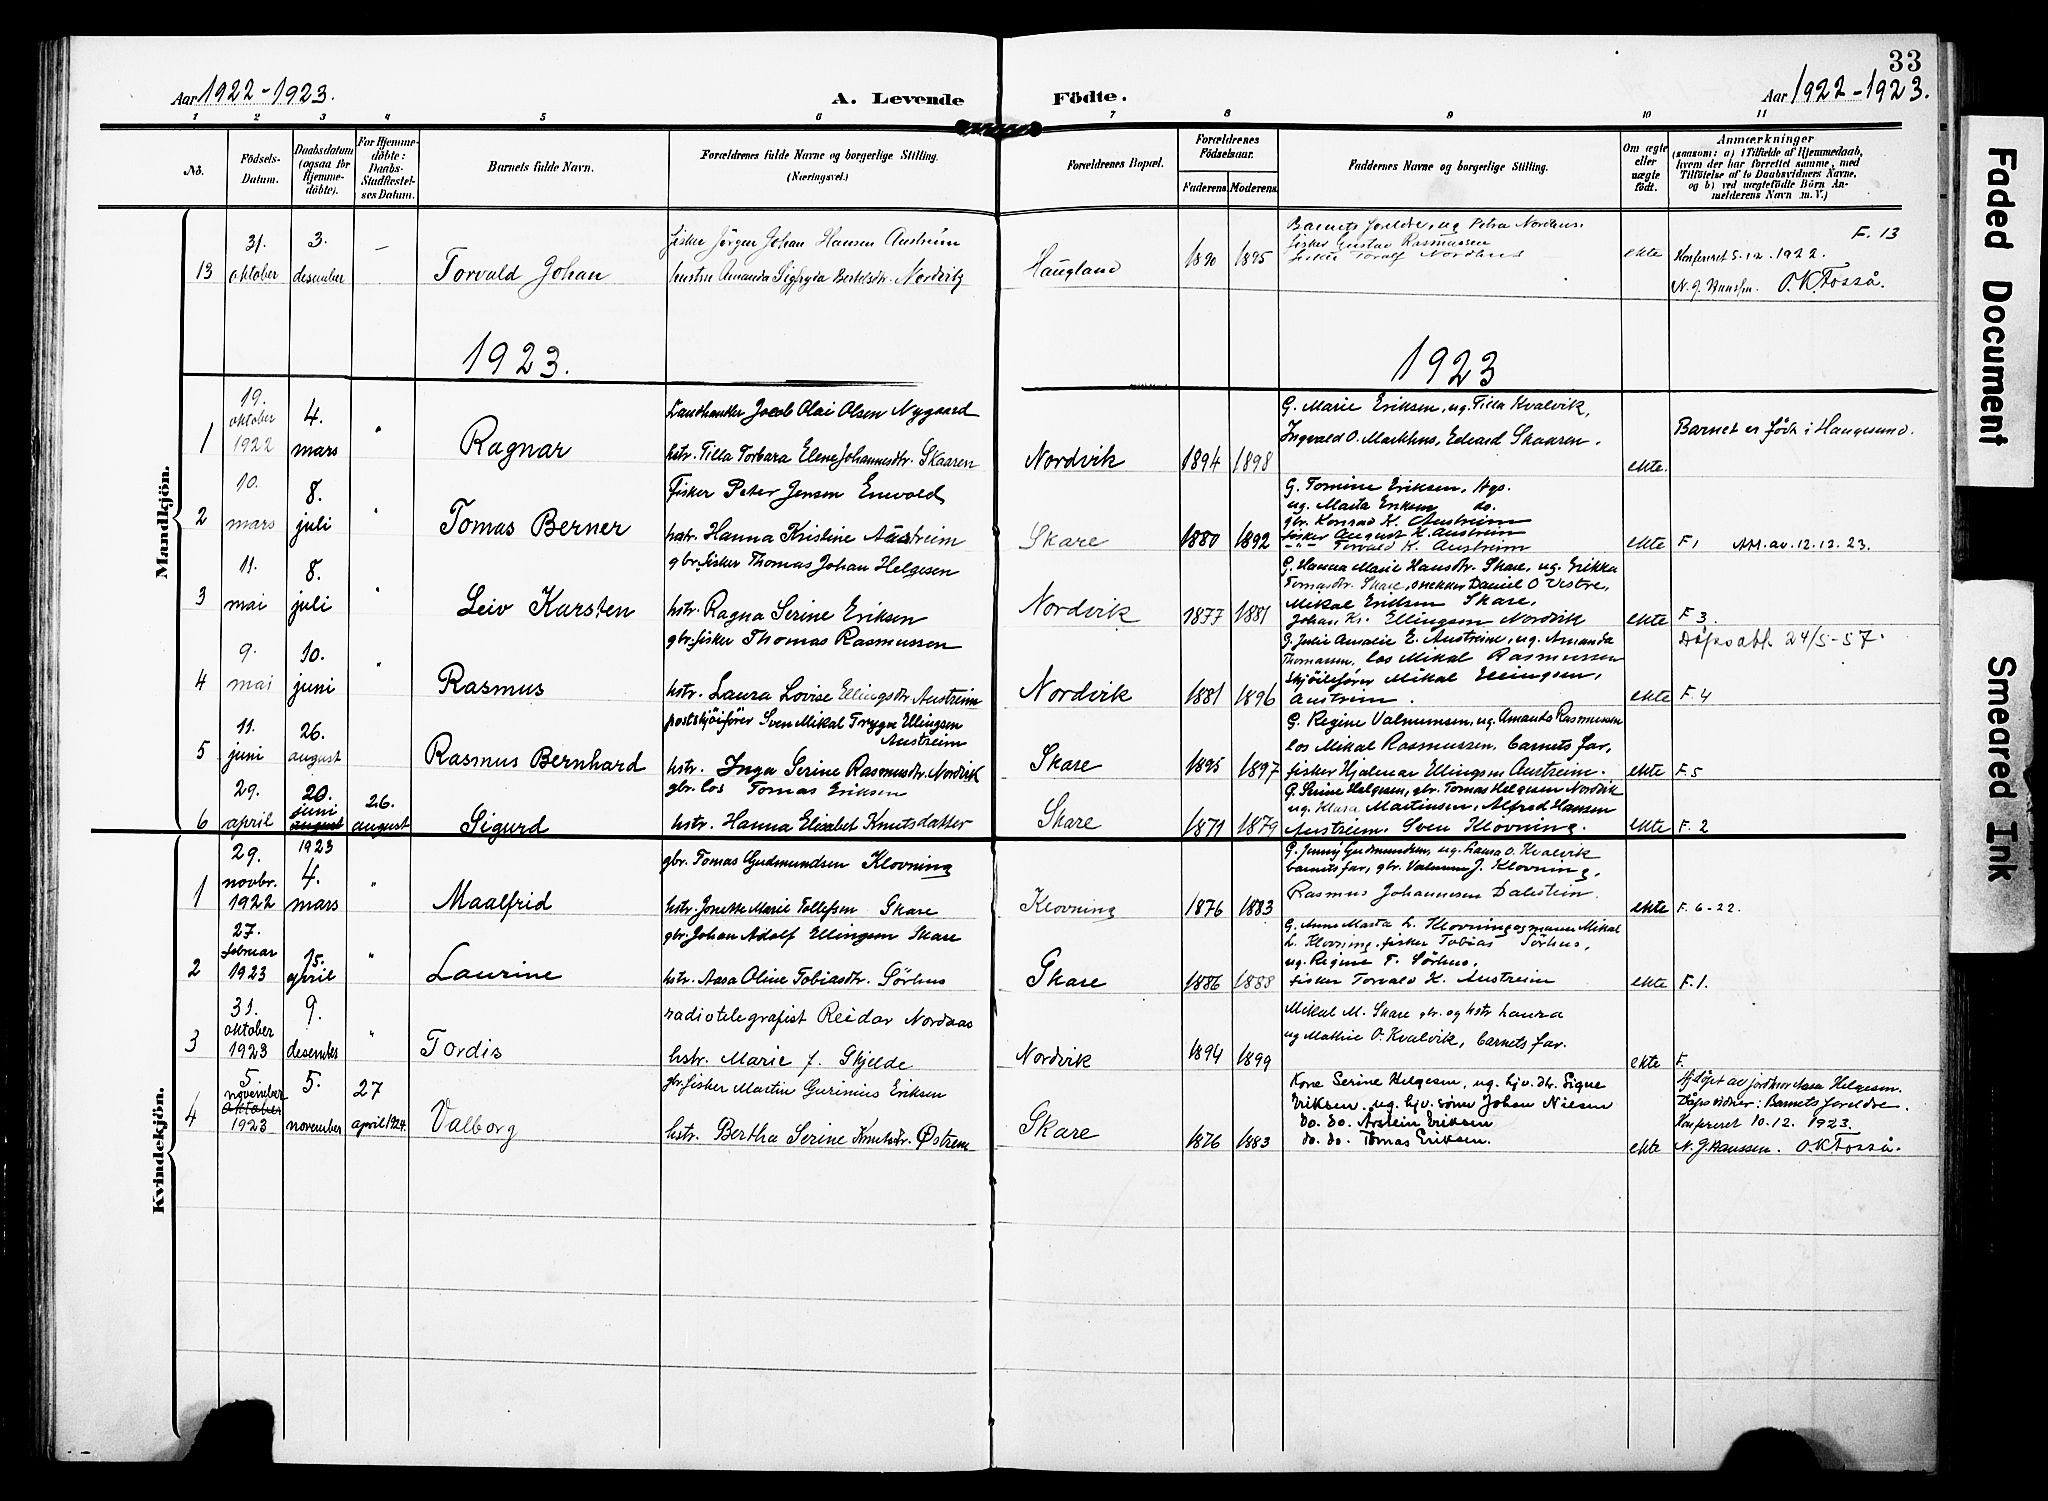 33
Aar 1922-1923.
A. Levende Födte.
Aar 1922-1923.
1 2 3 4 5 6 7 8 9 10 11
No.
Födsels-Datum.
Daabsdatum (ogsaa for Hjemme-döbte).
For Hjemme-döbte: Daabs-Stadfæstel-ses Datum.
Barnets fulde Navn.
Forældrenes fulde Navne og borgerlige Stilling.
(Næringsvei.)
Forældrenes Bopæl.
Forældrenes Födselsaar.
Faderens. Moderens.
Faddernes Navne og borgerlige Stilling.
Om ægte eller uægte født.
Anmærkninger
(saasom: a) i Tilfælde af Hjemmedaab,
hvem der har forrettet samme, med
Tilföielse af to Daabsvidners Navne,
og b) ved uægtefödte Börn An-
melderens Navn m. V.)
Mandkjön.
13
31. oktober
3. desember
–
Torvald Johan
fisker Jörgen Johan Hansen Austrem
hustru Amanda Bertelsdtr. Nordvik
Haugland
1890 1895
Barnets foreldre, ug Petra Nordhus.
fisker Gustav Rasmussen
fisker Torolf Nordhus
ekte
F. 13
Konferert 5.12.1922.
O.K. Fosså.
1923.
1923
1
19. oktober 1922
4. mars
"
Ragnar
Landhandler Jacob Olai Olsen Nygaard
hstr. Tilla Torbara Elene Johannesdtr. Skaaren
Nordvik
1894 1898
G. Marie Eriksen, ug. Tilla Kvalvik,
Ingvald O. Markhus, Edvard Skaaren.
ekte.
Barnet er født i Haugesund.
2
10. mars
8. juli
"
Tomas Berner
Fisker Peter Jensen Enevold
hstr. Hanna Kristine Austreim
Skare
1880 1892
G. Tomine Eriksen, Hgs.
ug. Marta Eriksen do.
gbr. Konrad K. Austreim
fisker August K. Austreim
-"- Torvald K. Austreim
ekte
F 1 Att. av. 12.12.23.
3
11. mai
8. juli
"
Leiv Karsten
gbr. fisker Thomas Johan Helgesen
hstr. Ragna Serine Eriksen
Nordvik
1877 1881
G. Hanna Marie Hansdtr. Skare, ug. Erikka
Tomasdtr. Skare, snekker Daniel O Vestre,
Mikal Eriksen Skare,
Johan Kr. Ellingsen Nordvik
ekte
F 3.
4
9. mai
10. juni
"
Rasmus
gbr. fisker Thomas Rasmussen
hstr. Laura Lovise Ellingsdtr Austreim
Nordvik
1881 1896
G. Julie Amalie E. Austreim, ug. Amanda
Thomassen, los Mikal Rasmussen
skjöitefører Mikal Ellingsen,
Austreim.
ekte
Dåpsatt. 24/5-57.
F. 4
5
11. juni
26. august
Rasmus Bernhard
postskjöitfører Sven Mikal Trygve Ellingsen
Austreim
hstr. Inga Serine Rasmusdtr. Nordvik
Skare
1895 1897
G. Regine Valnumsen, ug. Amanda Rasmussen
los Mikal Rasmussen, barnets far,
fisker Hjalmar Ellingsen Austreim.
ekte
F. 5
6
29. april
20. juni august
26. august
Sigurd
gbr. los Tomas Eriksen
hstr. Hanna Elisabet Knutsdatter
Skare
1871 1879
G. Serine Helgesen, gbr. Tomas Helgesen Nordvik
ug. Klara Martinsen, Alfred Hansen
Austreim. Sven Klovning.
ekte
F. 2
Kvindekjön.
1
29. novbr. 1922
1923 4. mars
"
Maalfrid
gbr. Tomas Gudmundsen Klovning
hstr. Jonette Marie Tollefsen Skare
Klovning
1876 1883
G. Jenny Gudmundsen, ug. Laura O. Kvalvik
barnets far, gbr. Valnum J. Klovning.
Rasmus Johannesen Dalestein.
ekte
F. 6-22.
2
27. februar 1923
15. april
"
Laurine
gbr. Johan Adolf Ellingsen Skare
hstr. Aasa Oline Tobiasdtr. Sörhus
Skare
1886 1888
G. Anne Marta L. Klovning og mann Mikal
L. Klovning. fisker Tobias Sörhus,
ug. Regine T. Sörhus.
fisker Torvald K. Austreim
ekte
F. 1.
3
31. oktober 1923
9. desember
"
Tordis
radiotelegrafist Reidar Nordaas
hstr. Marie f. Skjelde
Nordvik
1894 1899
Mikal M. Skare gbr. og hstr Laura
ug Mathie O. Kvalvik, barnets far.
ekte
F.
4
5 november oktober 1923
5. november
27 april 1924.
Valborg
gbr. fisker Martin Gurinius Eriksen
hstr. Bertha Serine Knutsdtr. Østrem
Skare
1876 1883
Kone Serine Helgesen, ug. hjv. dtr. Signe
Eriksen. ug. hjv. sønn Johan Nilsen
do. do. Arstein Eriksen
do. do. Tomas Eriksen.
ekte
Hj.döpt av jordmor Aasa Helgesen.
Dåpsvidner: Barnets foreldre.
Konferert 10.12. 1923.
N. J. Hanssen. O.K. Fosså.
Faded Document
Smeared Ink